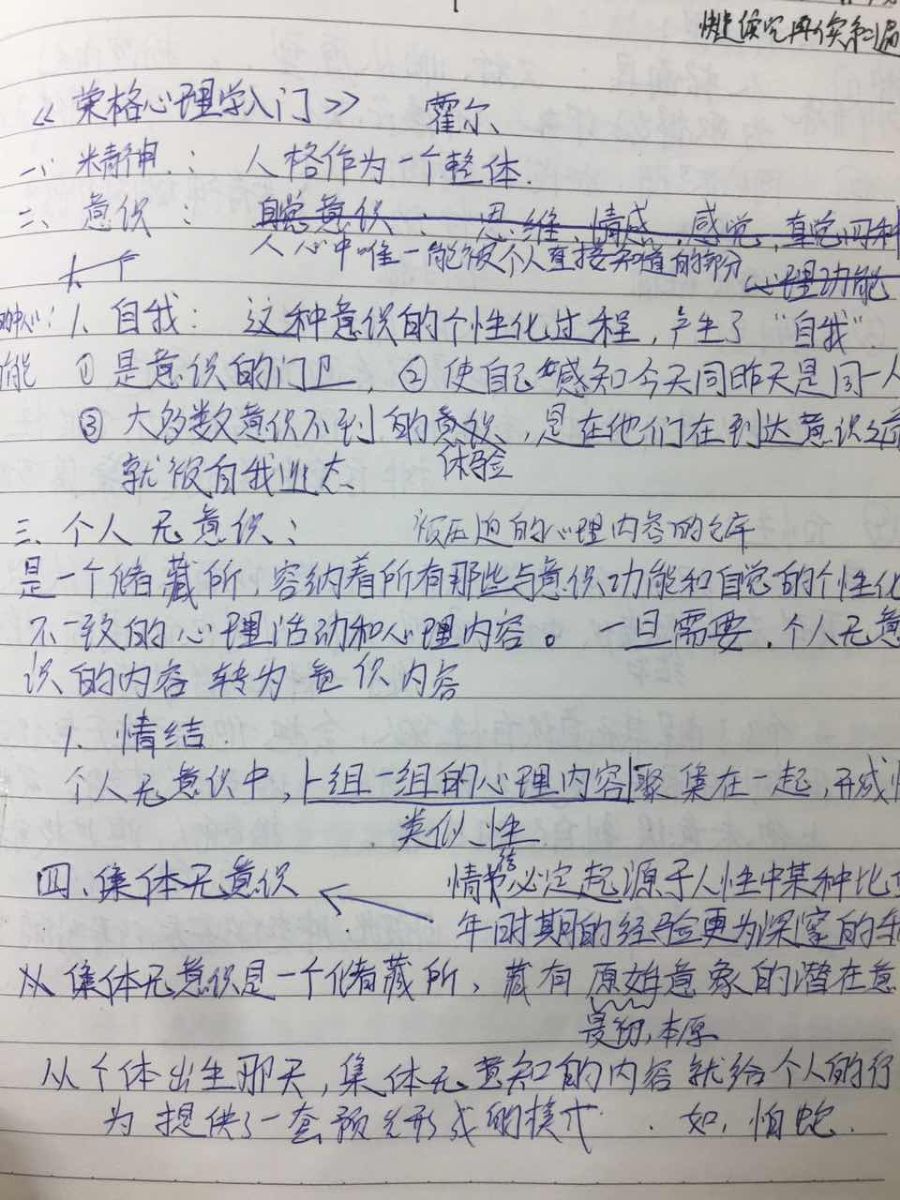 《荣格心理学入门》 霍尔
一、精神: 人格作为一个整体.
二、意识: 自觉意识: 思维、情感、感觉、直觉四种
人心中唯一能被个人直接知道的部分 心理功能
1、自我: 这种意识的个性化过程, 产生了“自我”.
能 ① 是意识的门卫, ② 使自己感知今天同昨天是同一人
③ 大多数意识不到的 , 是在他们在到达意识之前
体验
就被自我
三、个人无意识: 被压迫的心理内容的仓库
是一个储藏所, 容纳着所有那些与意识功能和自觉的个性化
不一致的心理活动和心理内容。 一旦需要, 个人无意
识的内容 转为意识内容
1、情结.
个人无意识中, 一组一组的心理内容聚集在一起, 形成
类似性
四、集体无意识 情结必定起源于人性中某种比
年时期的经验更为深邃的
集体无意识是一个储藏所, 藏有原始意象的潜在意
最初, 本原
从个体出生那天, 集体无意知的内容就给个人的行
为提供了一套预先形成的模式. 如, 怕蛇.